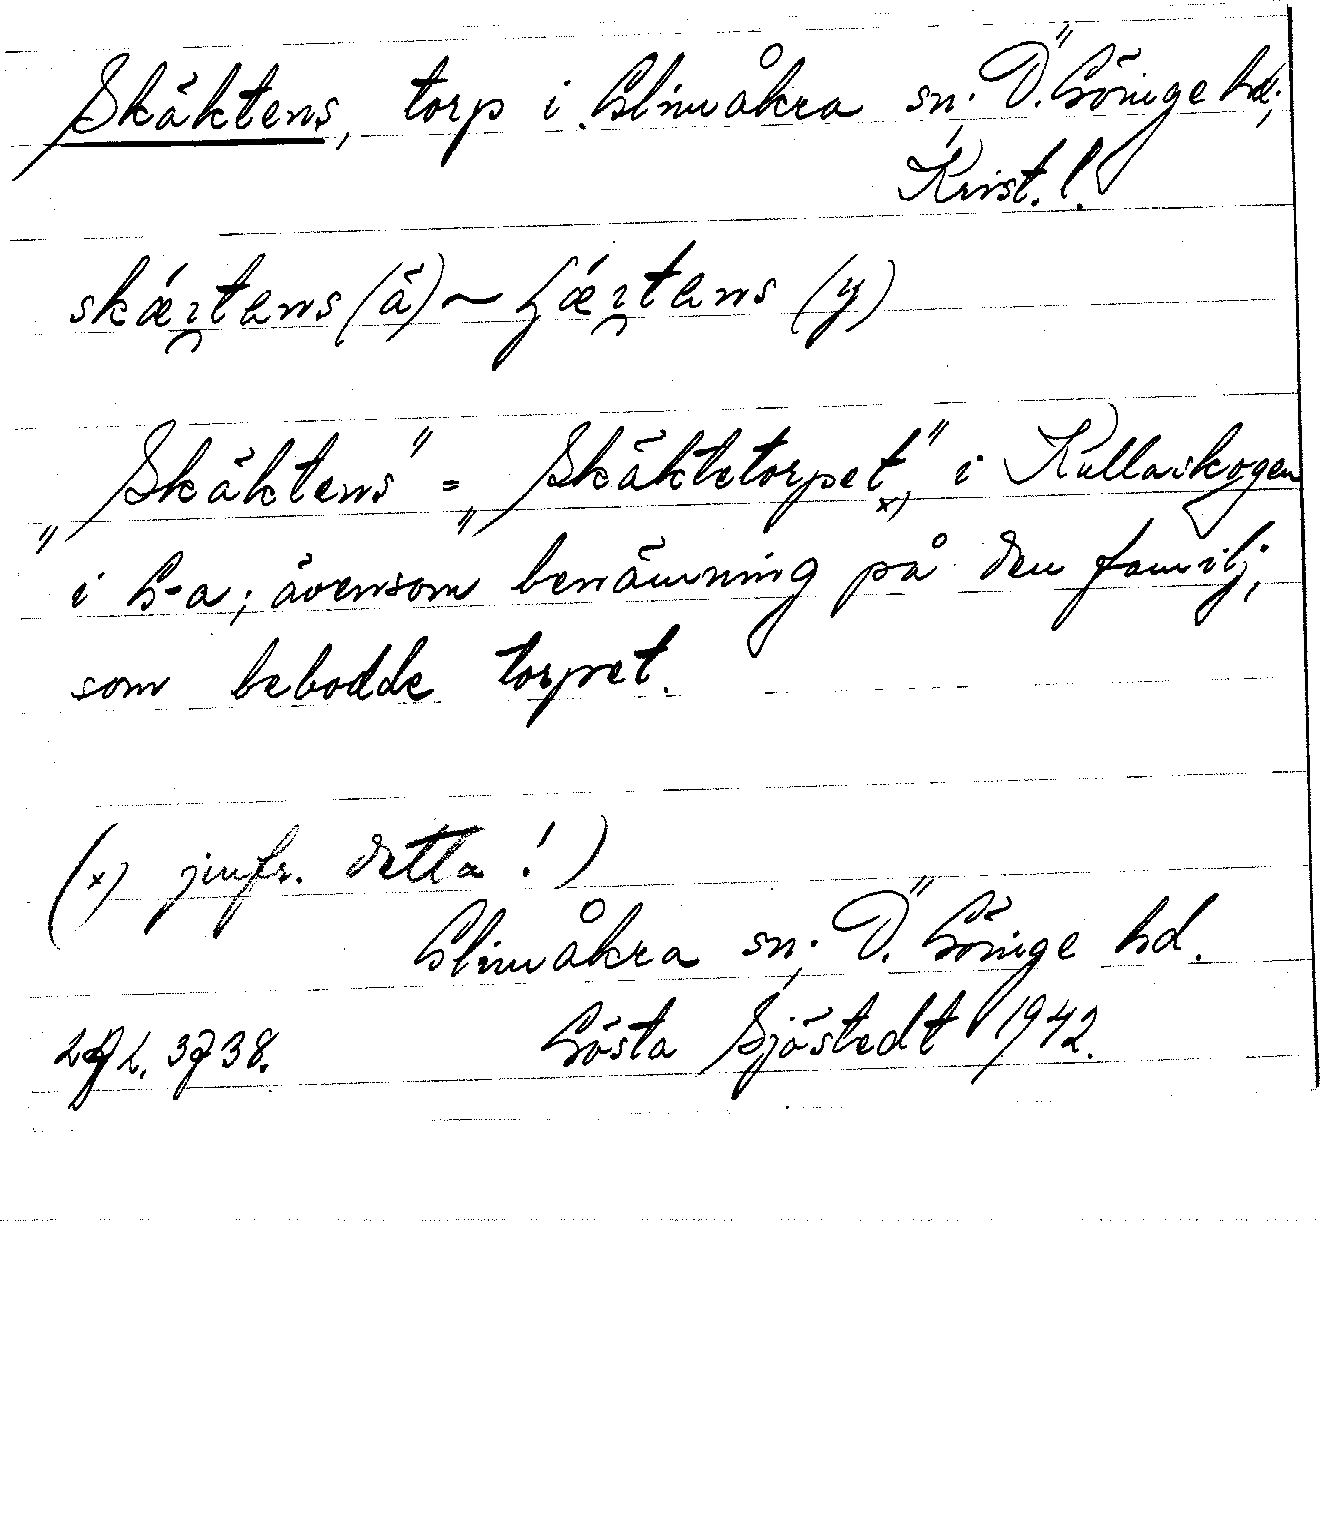 Skäktens, torp i Glimåkra sn; Ö. Göinge hd;
Krist. l.
(ä) ~ (y)
"Skäktens" = "Skäktetorpet"x) i Kullaskogen
i G-a; ävensom benämning på den familj,
som bebodde torpet.
(x) jmfr. detta!)
Glimåkra sn; Ö. Göinge hd.
Gösta Sjöstedt 1942.